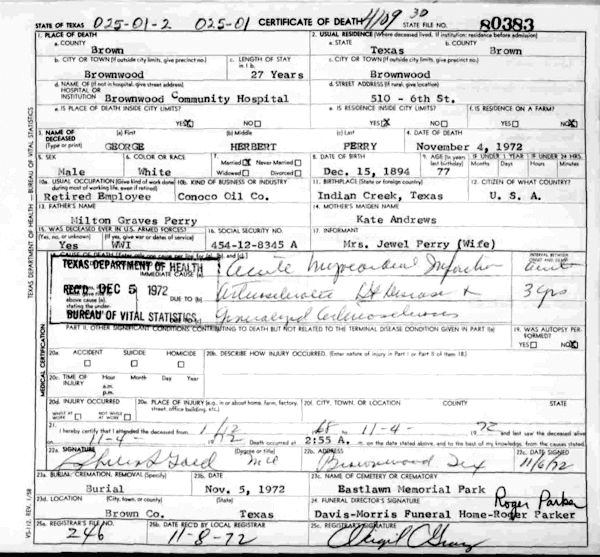 STATE OF TEXAS 025-01-2 025-01 CERTIFICATE OF DEATH 4109 30 STATE FILE NO. 80383
1. PLACE OF DEATH
a. COUNTY
Brown
2. USUAL RESIDENCE (Where deceased lived. If institution: residence before admission)
a. STATE b. COUNTY
Texas Brown
b. CITY OR TOWN (If outside city limits, give precinct no.) c. LENGTH OF STAY in 1 b.
Brownwood 27 Years
c. CITY OR TOWN (If outside city limits, give precinct no.)
Brownwood
d. NAME OF (If not in hospital, give street address)
HOSPITAL OR
INSTITUTION Brownwood Community Hospital
d. STREET ADDRESS (If rural, give location)
510 - 6th St.
e. IS PLACE OF DEATH INSIDE CITY LIMITS?
YES X NO
e. IS RESIDENCE INSIDE CITY LIMITS? f. IS RESIDENCE ON A FARM?
YES X NO YES NO X
3. NAME OF DECEASED (Type or print) (a) First (b) Middle (c) Last 4. DATE OF DEATH
GEORGE HERBERT PERRY November 4, 1972
5. SEX 6. COLOR OR RACE 7. Married X Never Married Widowed Divorced
Male White
8. DATE OF BIRTH 9. AGE (In years last birthday) IF UNDER 1 YEAR IF UNDER 24 HRS.
Dec. 15, 1894 77
10a. USUAL OCCUPATION (Give kind of work done during most of working life, even if retired) 10b. KIND OF BUSINESS OR INDUSTRY
Retired Employee Conoco Oil Co.
11. BIRTHPLACE (State or foreign country) 12. CITIZEN OF WHAT COUNTRY?
Indian Creek, Texas U. S. A.
13. FATHER'S NAME
Milton Graves Perry
14. MOTHER'S MAIDEN NAME
Kate Andrews
15. WAS DECEASED EVER IN U.S. ARMED FORCES? 16. SOCIAL SECURITY NO. 17. INFORMANT
(Yes, no, or unknown) (If yes, give war or dates of service)
Yes WWI 454-12-8345 A Mrs. Jewel Perry (Wife)
TEXAS DEPARTMENT OF HEALTH
REC'D DEC 5 1972
BUREAU OF VITAL STATISTICS
INTERVAL BETWEEN ONSET AND DEATH
IMMEDIATE CAUSE (a) Acute Myocardial Infarction
DUE TO (b) Arteriosclerotic Ht Disease & 3 yrs
Generalized Arteriosclerosis
PART II. OTHER SIGNIFICANT CONDITIONS CONTRIBUTING TO DEATH BUT NOT RELATED TO THE TERMINAL DISEASE CONDITION GIVEN IN PART I(a)
19. WAS AUTOPSY PERFORMED?
YES NO X
20a. ACCIDENT SUICIDE HOMICIDE
20b. DESCRIBE HOW INJURY OCCURRED. (Enter nature of injury in Part I or Part II of item 18.)
20c. TIME OF INJURY Hour Month Day Year
a.m.
p.m.
20d. INJURY OCCURRED
WHILE AT WORK NOT WHILE AT WORK
20e. PLACE OF INJURY (e.g., in or about home, farm, factory, street, office building, etc.)
20f. CITY, TOWN, OR LOCATION COUNTY STATE
21. I hereby certify that I attended the deceased from 1/12 68 11-4- 1972 and last saw the deceased alive
on 11-4- 1972 Death occurred at 2:55 A. m. on the date stated above, and to the best of my knowledge, from the causes stated.
22a. SIGNATURE (Degree or title) 22b. ADDRESS 22c. DATE SIGNED
Brownwood Tex 11/6/72
23a. BURIAL, CREMATION, REMOVAL (Specify) 23b. DATE 23c. NAME OF CEMETERY OR CREMATORY
Burial Nov. 5, 1972 Eastlawn Memorial Park
23d. LOCATION (City, town, or county) (State)
Brown Co. Texas
24. FUNERAL DIRECTOR'S SIGNATURE
Roger Parker
Davis-Morris Funeral Home-Roger Parker
25a. REGISTRAR'S FILE NO. 25b. DATE REC'D BY LOCAL REGISTRAR 25c. REGISTRAR'S SIGNATURE
246 11-8-72
TEXAS DEPARTMENT OF HEALTH — BUREAU OF VITAL STATISTICS
MEDICAL CERTIFICATION
VS-112, REV. 1/58